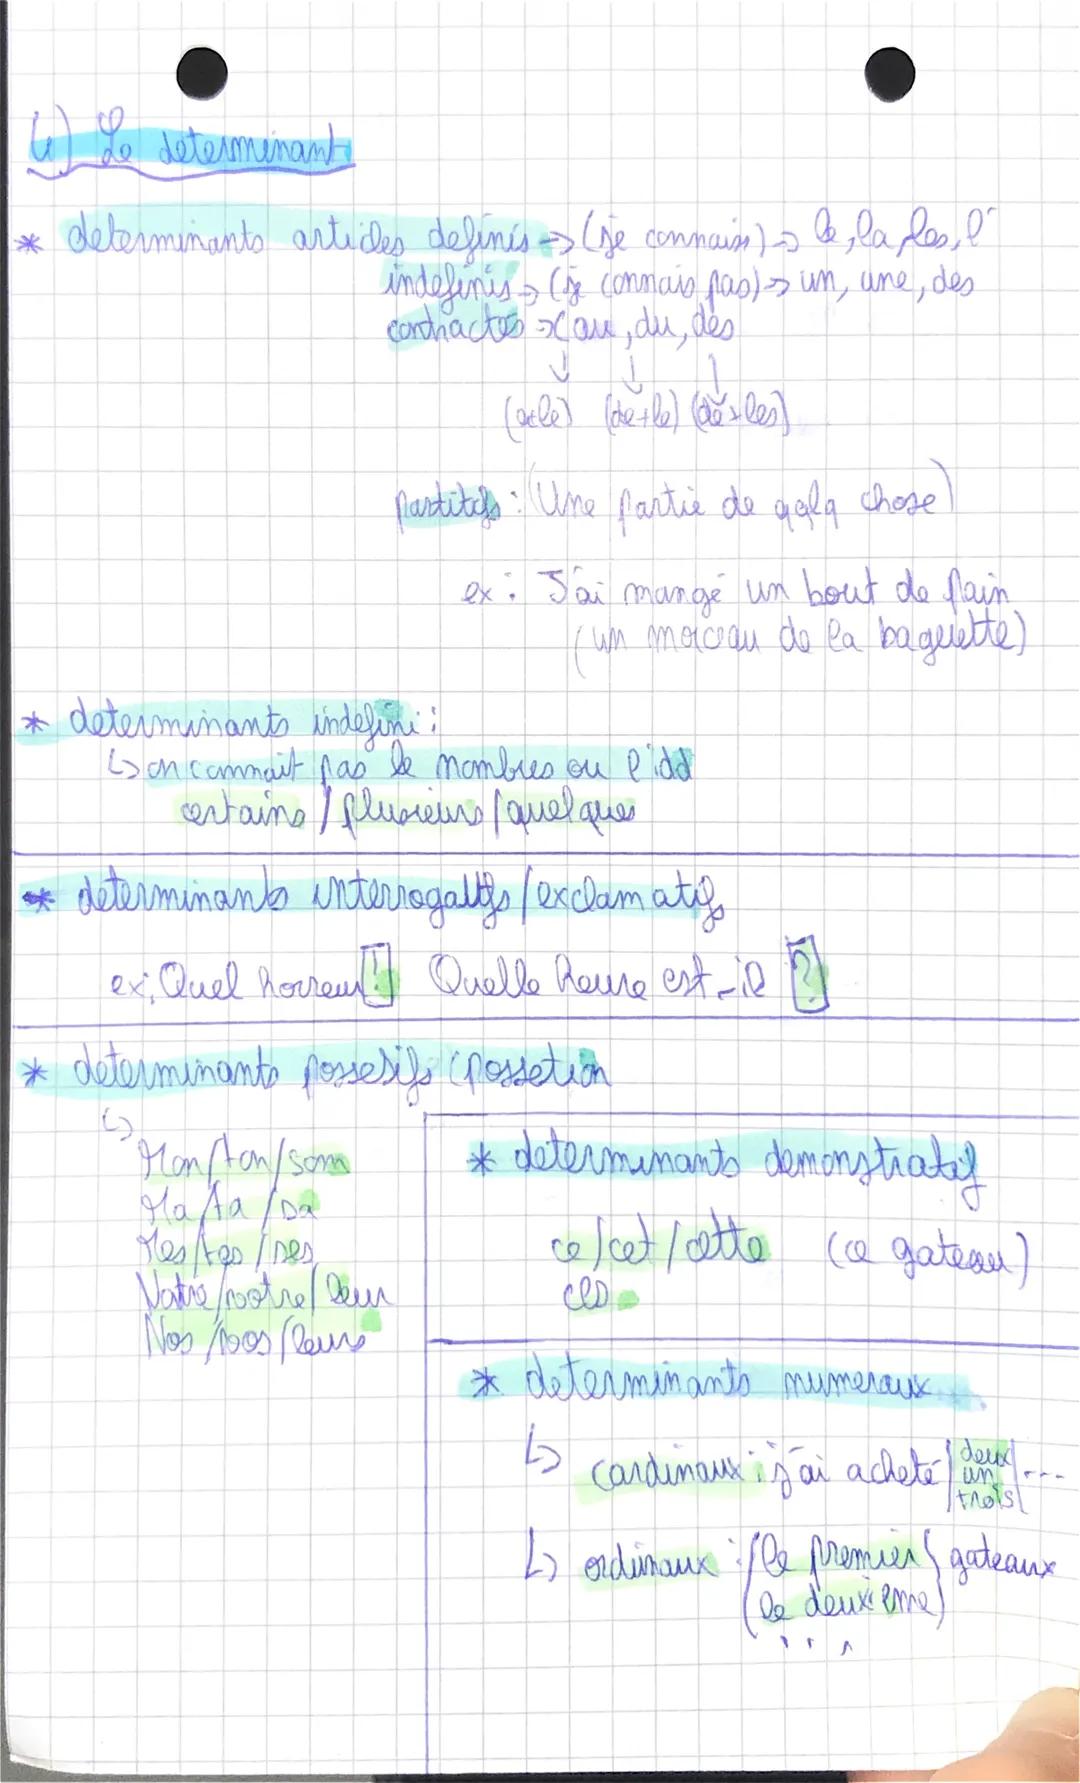 4) Le determinant
* determinants articles definis → (je connais) → le, la, les, l'
indefinis → (je connais pas) → un, une, des
contractes → (au, du, des
↓ ↓ ↓
(a+le) (de+le) (de+les)
partitifs : (Une partie de qqlq chose)
ex : J'ai mangé un bout de pain
(un morceau de la baguette)
* determinants indefini :
↳ on connait pas le nombres ou l'idd
certains / plusieurs / quelques
* determinants interrogatifs / exclamatifs
ex : Quel horreur ! Quelle heure est-il ?
* determinants possesifs (possetion
↳
Mon/ton/son
Ma/ta/sa
Mes/tes/ses
Notre/votre/leur
Nos/vos/leurs
* determinants demonstratif
ce/cet/cette (ce gateau)
ces
* determinants numeraux
↳ cardinaux : j'ai acheté | deux
un
trois | ---
↳ ordinaux : { le premier } gateaux
le deuxieme
...